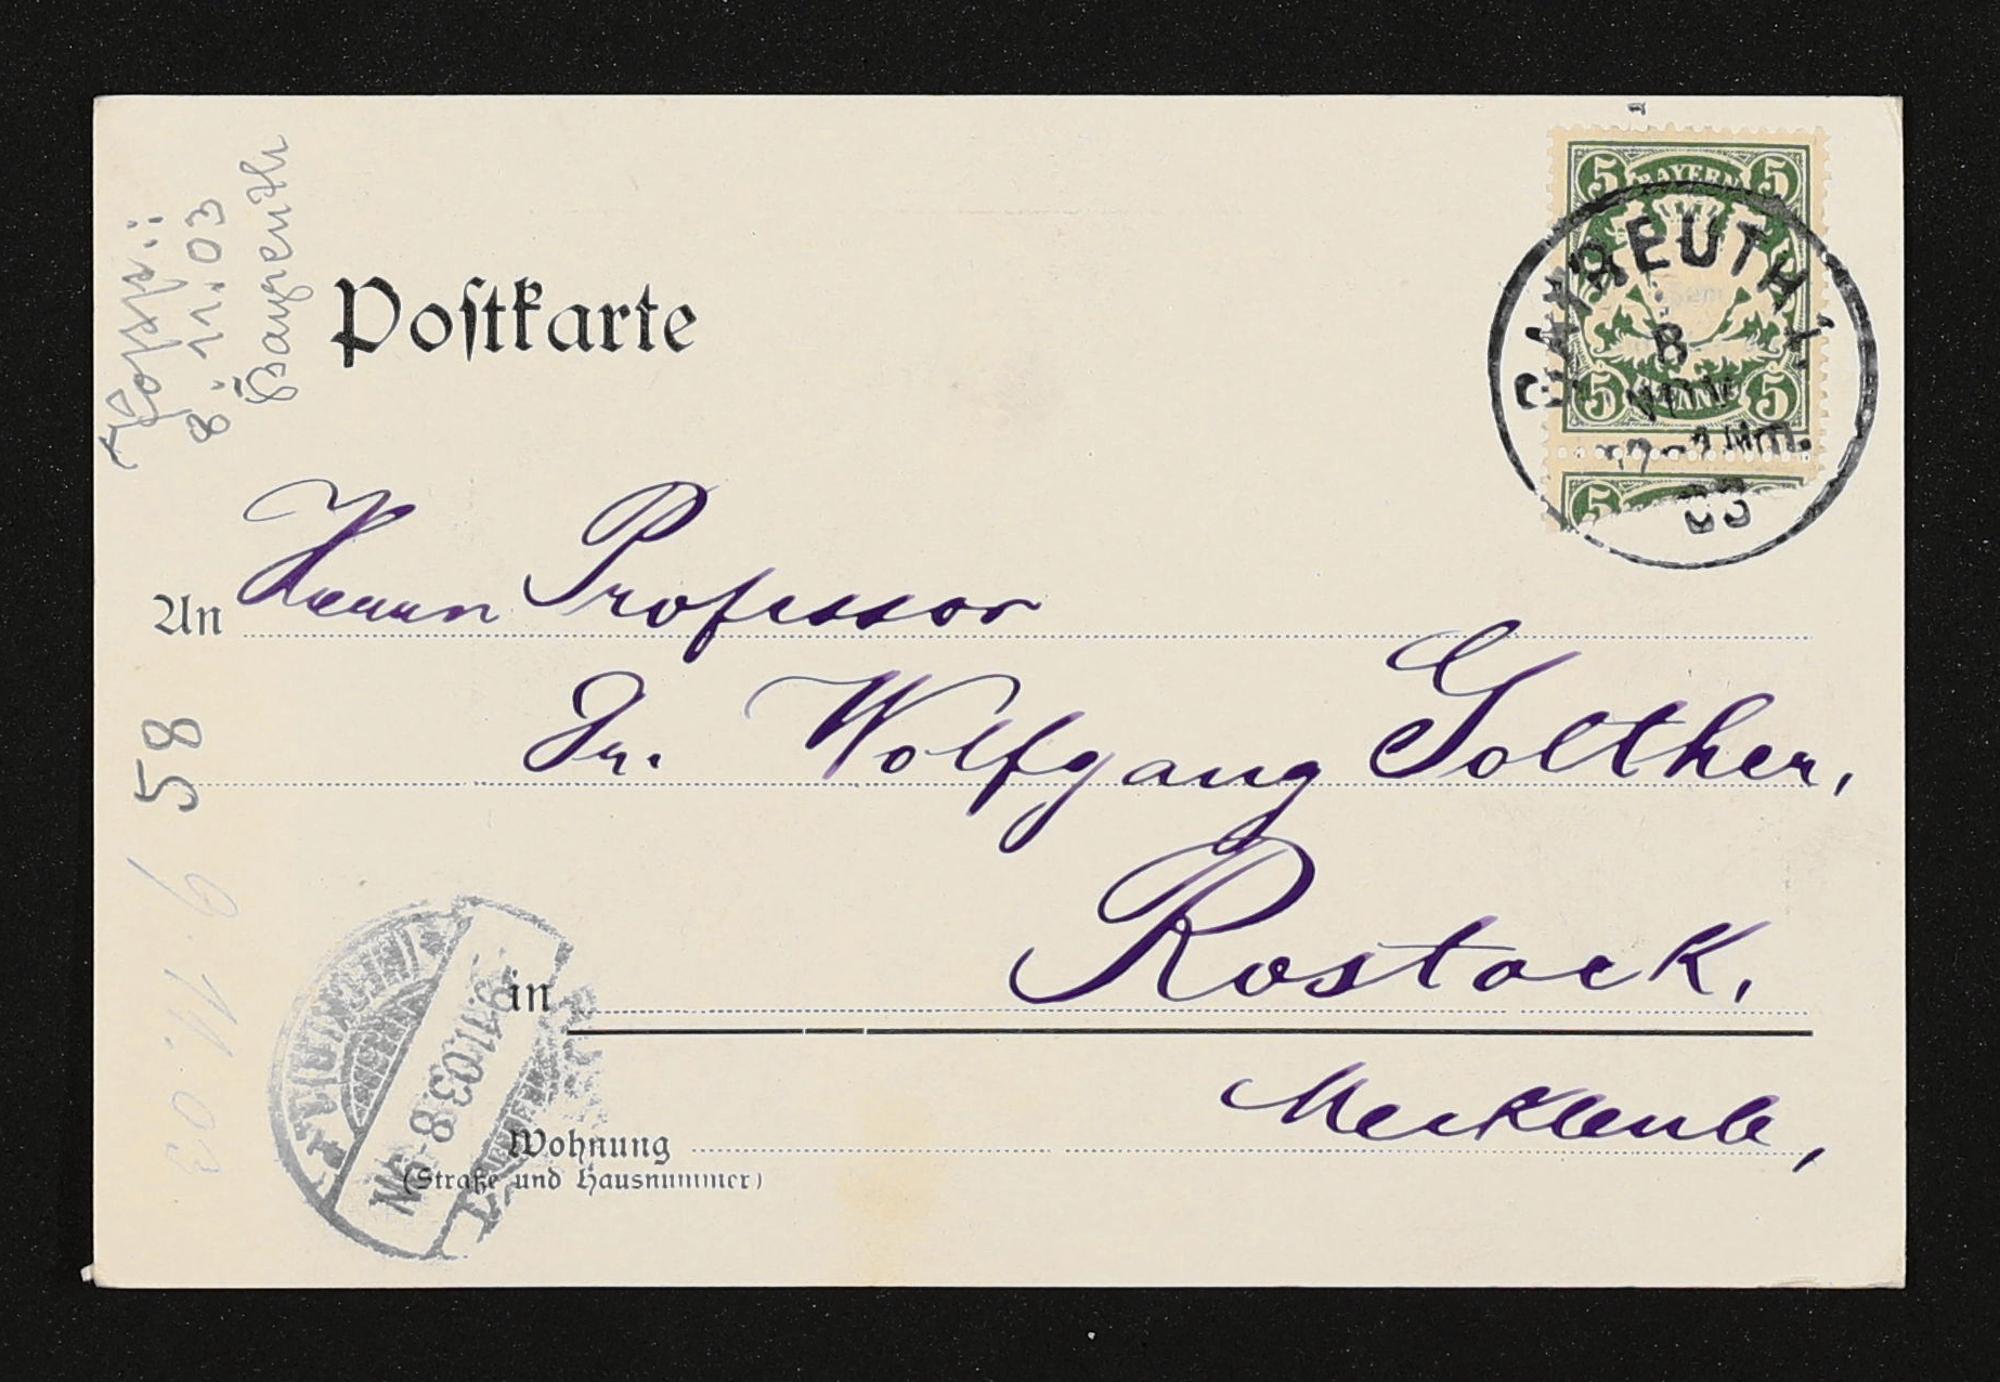 8. 11. 03
Bayreuth
Postkarte
5 BAYERN 5
BAYREUTH I.
8
NOV
12-1 Nm.
03
5 PFENNIG 5
5
An Herrn Professor
Dr. Wolfgang Golther,
58
in Rostock,
9. 11. 03
9.11.03.8-9N.
Mecklenb,
Wohnung
(Straße und Hausnummer)